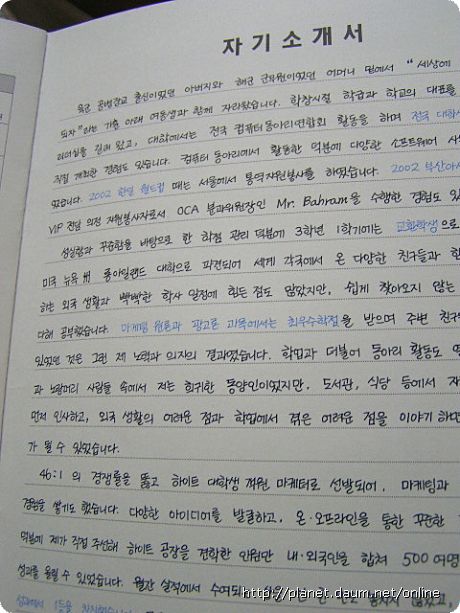 자기소개서
육군 공병장교 출신이었던 아버지와 해군 군무원이었던 어머니 밑에서 "세상에
되자"라는 가훈 아래 여동생과 함께 자라왔습니다. 학창시절 학급과 학교의 대표를
리더십을 길러 왔고, 대학에서는 전국 컴퓨터동아리연합회 활동을 하며 전국 대학
직접 개최한 경험도 있습니다. 컴퓨터 동아리에서 활동한 덕분에 다양한 소프트웨어 사
있습니다. 2002 한일 월드컵 때는 서울에서 통역자원봉사를 하였습니다. 2002 부산아시
VIP 전담 의전 자원봉사자로서 OCA 분과위원장인 Mr. Bahram을 수행한 경험도 있
성실함과 꾸준함을 바탕으로 한 학점 관리 덕분에 3학년 1학기에는 교환학생으로
미국 뉴욕州 롱아일랜드 대학으로 파견되어 세계 각국에서 온 다양한 친구들과 함
하는 외국 생활과 빡빡한 학사 일정에 힘든 점도 많았지만, 쉽게 찾아오지 않는
다해 공부했습니다. 마케팅 원론과 광고론 과목에서는 최우수학점을 받으며 주변 친구
있었던 것은 그런 제 노력과 의지의 결과였습니다. 학업과 더불어 동아리 활동도 열
과 노랑머리 사람들 속에서 저는 희귀한 동양인이었지만, 도서관, 식당 등에서 자
먼저 인사하고, 외국 생활의 어려운 점과 학업에서 겪은 어려운 점을 이야기 하면
가 될 수 있었습니다.
46:1 의 경쟁률을 뚫고 하이트 대학생 객원 마케터로 선발되어, 마케팅과
경험을 쌓기도 했습니다. 다양한 아이디어를 발굴하고, 온·오프라인을 통한 꾸준한
덕분에 제가 직접 주선해 하이트 공장을 견학한 인원만 내·외국인을 합쳐 500여명
성과를 올릴 수 있었습니다. 월간 실적에서 수여되는
http://planet.daum.net/online